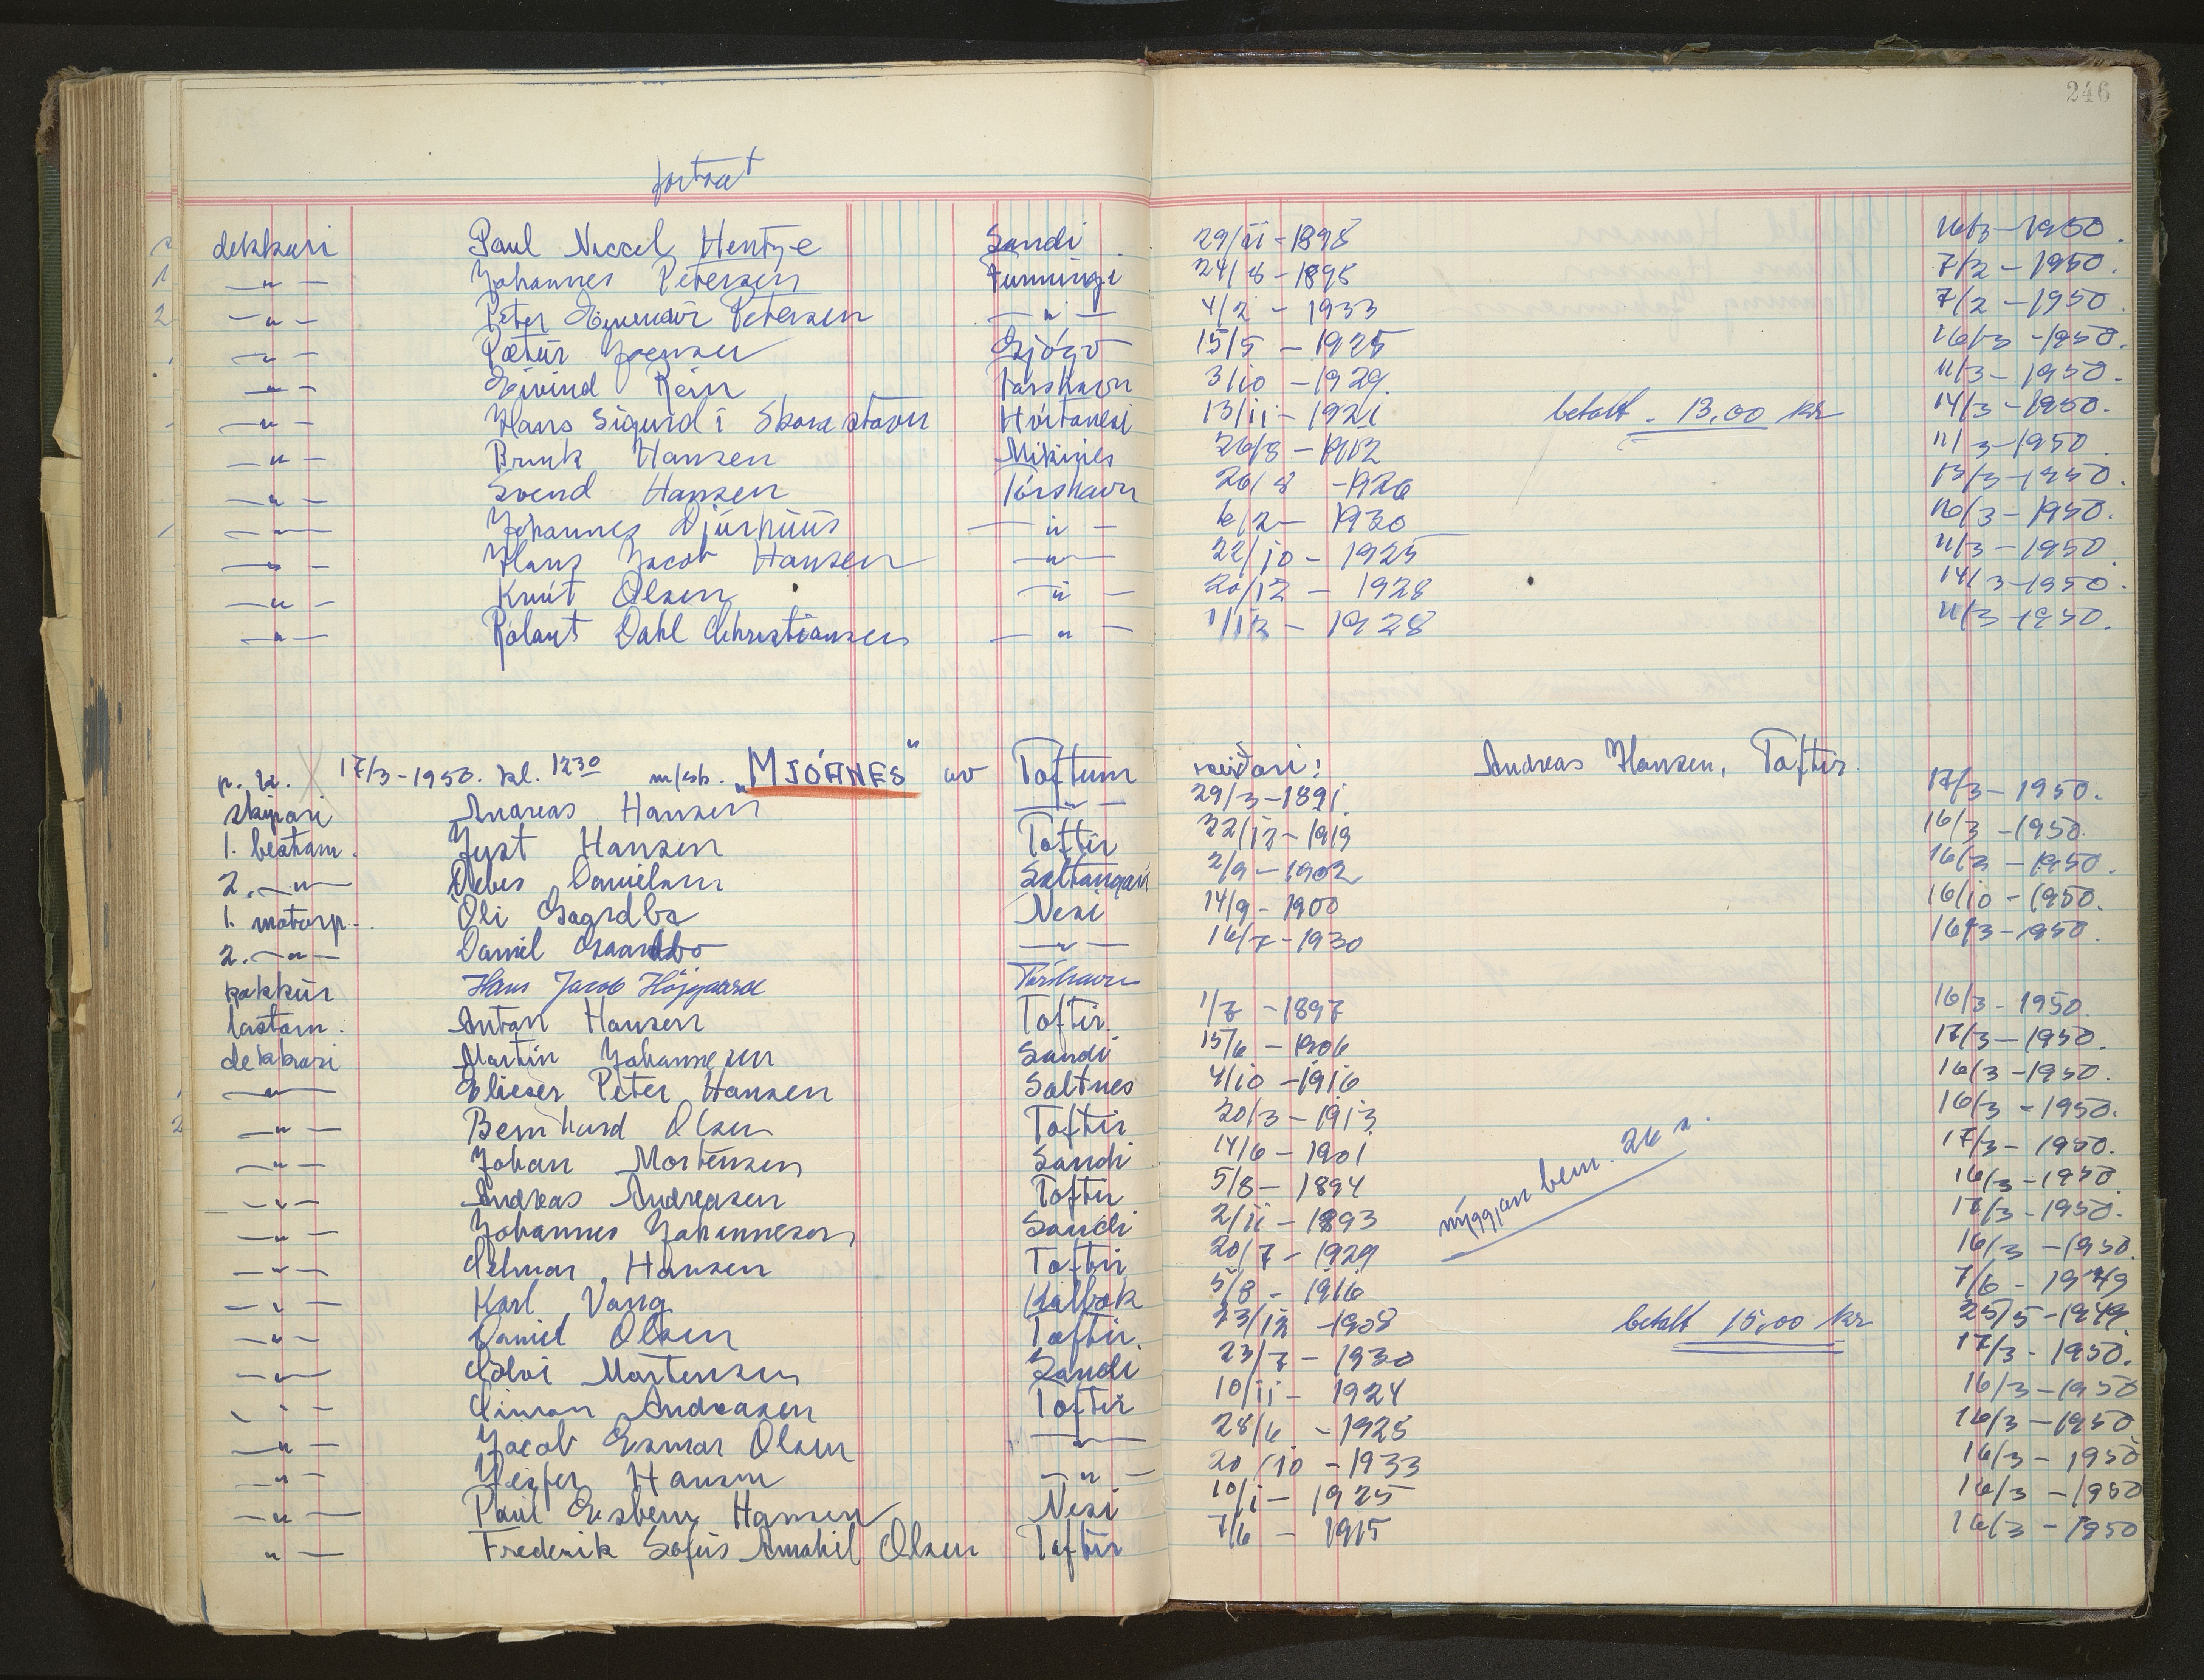 246
fortsat
dekkari Paul Niccel Hentze Sandi 29/11-1898 16/3-1950.
1 —"— Johannes Petersen Funningi 24/8-1898 7/2-1950.
2 —"— Peter Petersen —"— 4/2-1933 7/2-1950
—"— Pætur Joensen Gjógv 15/5-1925 16/3-1950.
—"— Eivind Rein Tórshavn 3/10-1929. 11/3-1950.
—"— Hans Sigurd í Skorastovu Hvítanesi 13/11-1921 betalt. 13,00 kr 14/3-1950.
—"— Brunk Hansen Mikines 26/8-1912 11/3-1950
—"— Svend Hansen Tórshavn 26/8-1926 13/3-1950.
—"— Johannes Djurhuus —"— 6/2-1930 16/3-1950.
—"— Hans Jacob Hansen —"— 22/10-1925 11/3-1950
—"— Knút Olsen —"— 20/12-1928 14/3-1950.
—"— Rólant Dahl Christiansen —"— 1/12-1928 11/3-1950.
17/3-1950. kl. 1230 m/sk. "MJÓANES" av Toftum reiðari: Andreas Hansen, Toftir.
skipari Andreas Hansen —"— 29/3-1891 17/3-1950.
1. bestam. Jyst Hansen Toftir 22/12-1919 16/3-1950.
2. —"— Debes Danielsen Saltangará 2/9-1902 16/3-1950.
1. motorp. Óli Gaardbo Nesi 14/9-1900 16/10-1950.
2. —"— Daniel Gaardbo —"— 16/7-1930 16/3-1950.
kokkur Hans Jacob Højgaard Tórshavn
lastam. Anton Hansen Toftir 1/7-1897 16/3-1950.
dekkari Martin Johannesen Sandi 15/6-1906 17/3-1950.
—"— Elieser Peter Hansen Saltnes 4/10-1916 16/3-1950.
2 —"— Bernhard Olsen Toftir 20/3-1913 16/3-1950.
—"— Johan Mortensen Sandi 14/6-1901 17/3-1950.
—"— Andreas Andreasen Toftir 5/8-1894 16/3-1950.
—"— Johannes Johannesen Sandi 2/11-1893 nýggjan bem. 26 17/3-1950.
—"— Hansen Toftir 20/7-1929 16/3-1950.
—"— Karl Vang Kalbak 5/8-1916 7/6-1949
—"— Daniel Olsen Toftir. 23/12-1908 betalt 15,00 kr 25/5-1949
—"— Mortensen Sandi 23/7-1930 17/3-1950.
—"— Simon Andreasen Toftir 10/11-1924 16/3-1950
—"— Jacob Esmar Olsen —"— 28/6-1925 16/3-1950
—"— Hansen —"— 20/10-1933 16/3-1950
—"— Paul Esbern Hansen Nesi 10/1-1925 16/3-1950
—"— Frederik Sofus Olsen Toftir 7/6-1915 16/3-1950